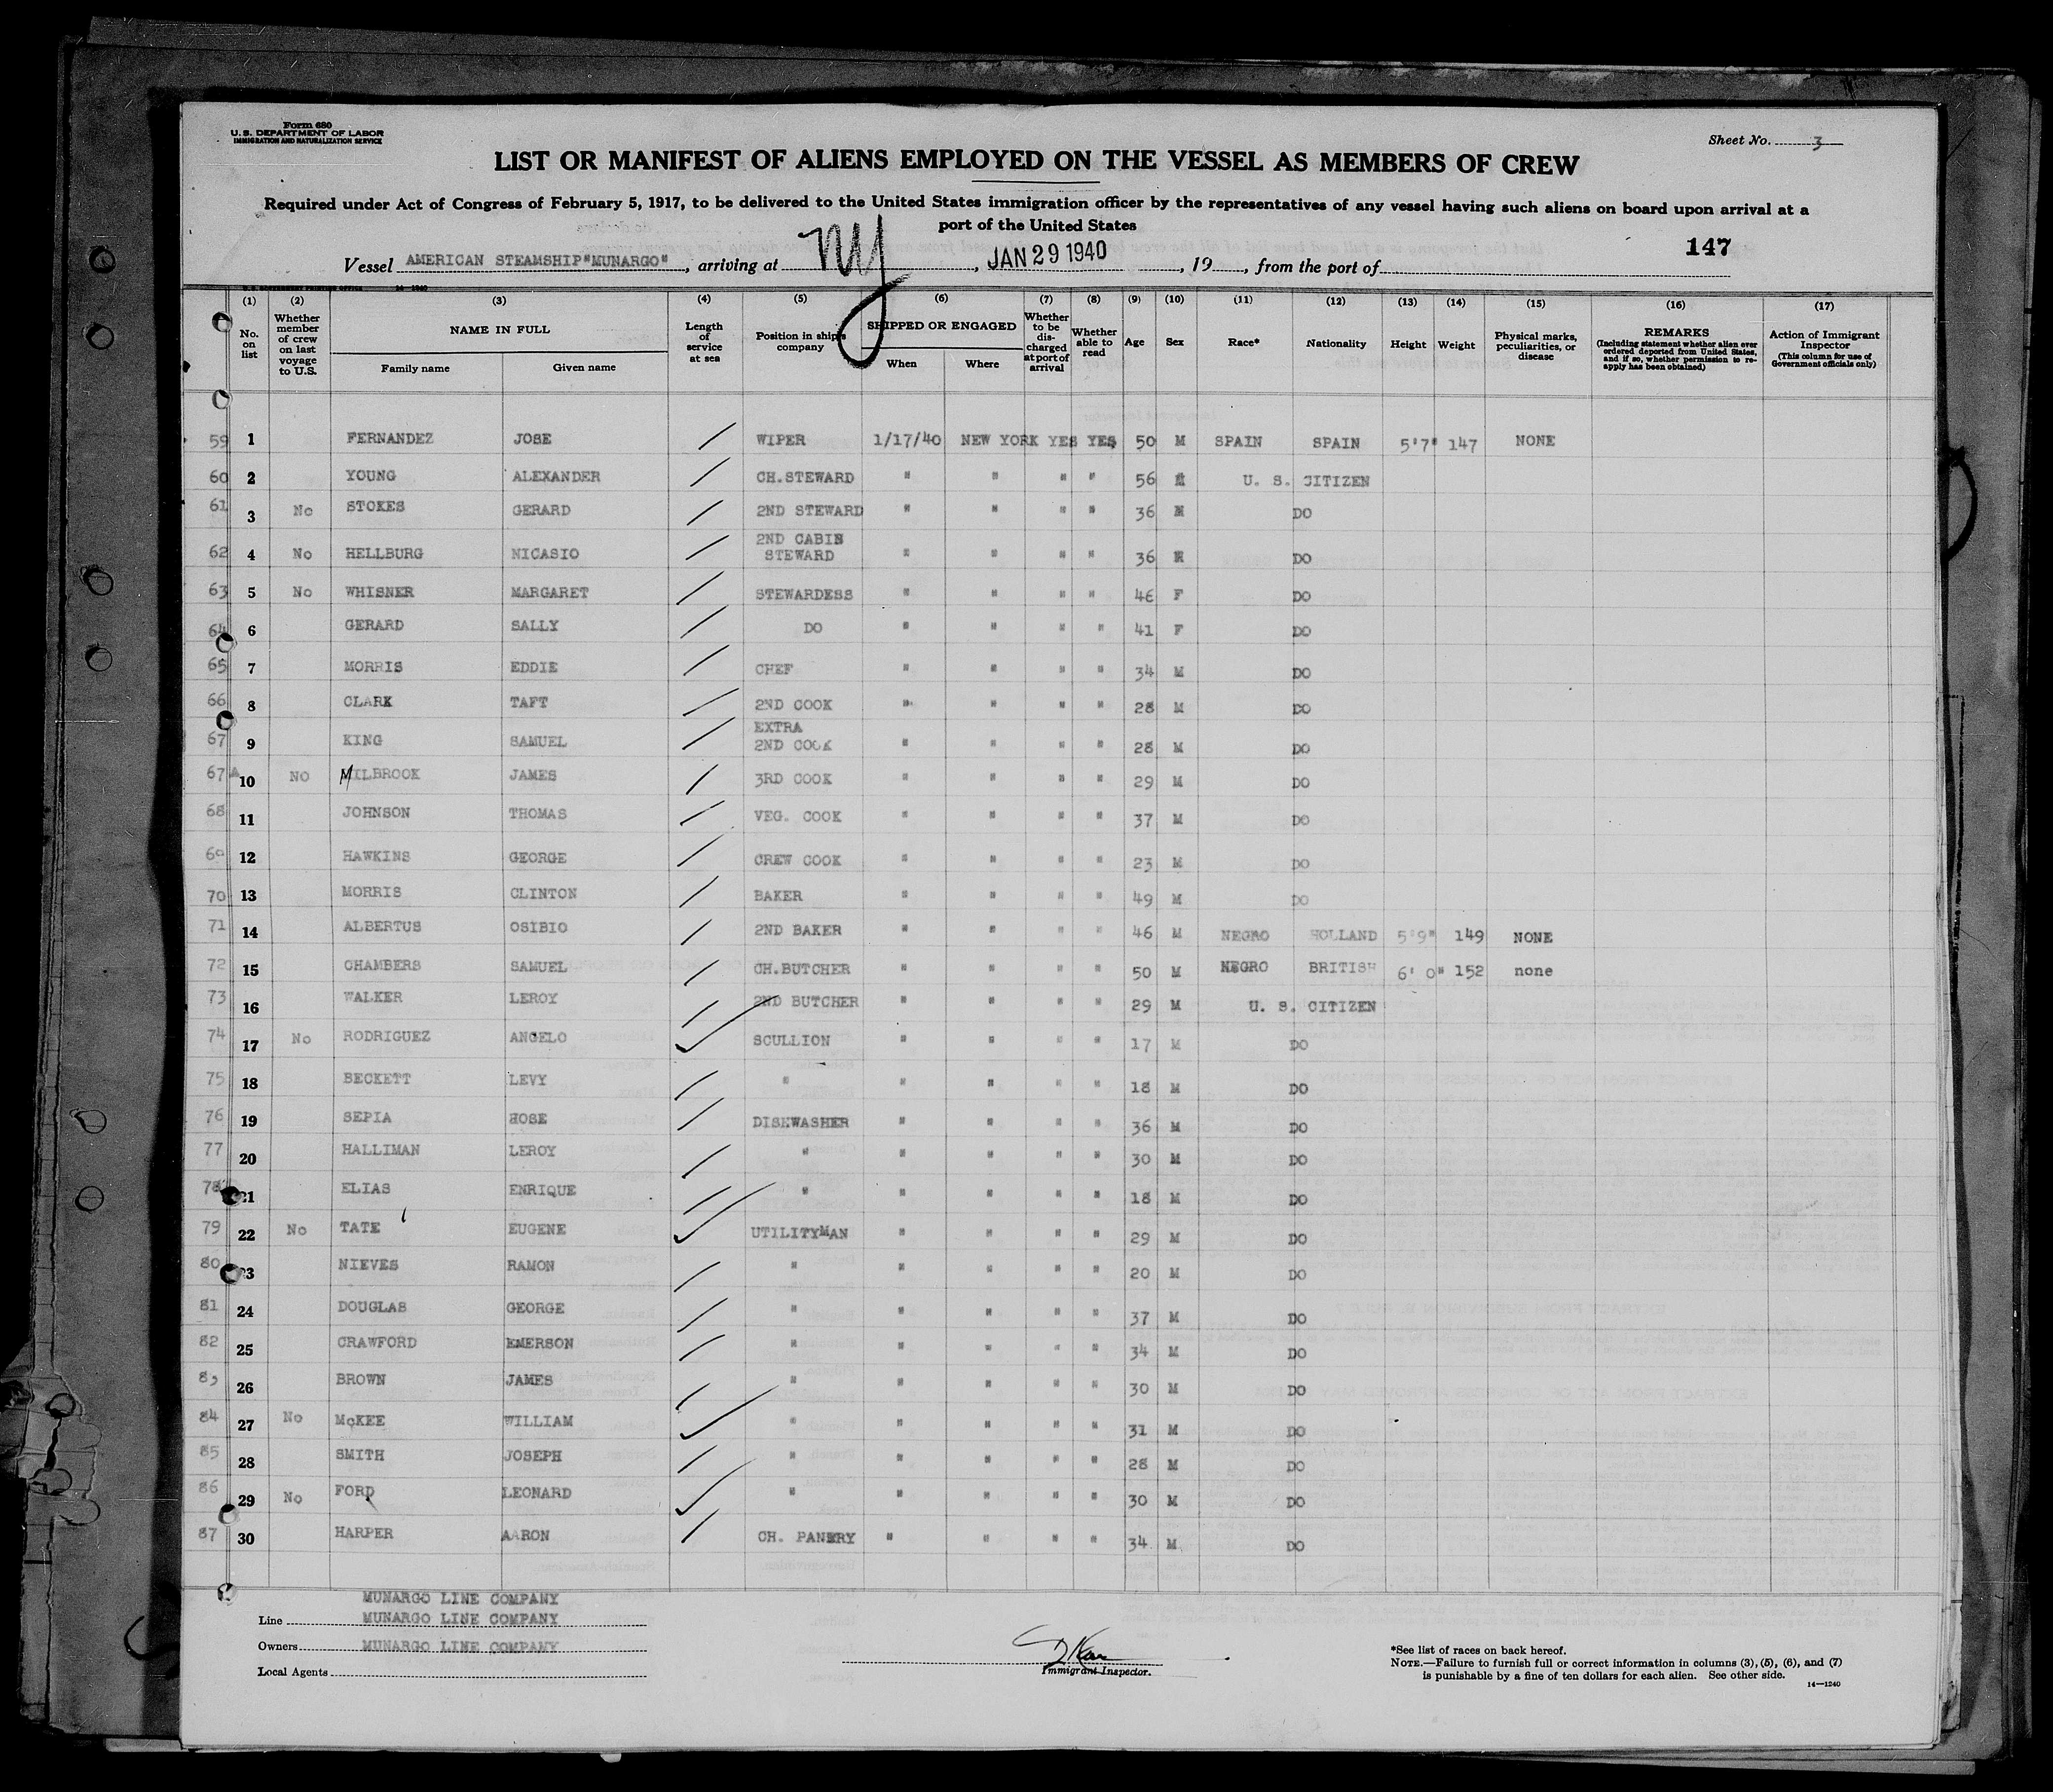 Form 680
U. S. DEPARTMENT OF LABOR
IMMIGRATION AND NATURALIZATION SERVICE
Sheet No. 3
LIST OR MANIFEST OF ALIENS EMPLOYED ON THE VESSEL AS MEMBERS OF CREW
Required under Act of Congress of February 5, 1917, to be delivered to the United States immigration officer by the representatives of any vessel having such aliens on board upon arrival at a
port of the United States
147
Vessel AMERICAN STEAMSHIP"MUNARGO", arriving at NY, JAN 29 1940, 19, from the port of
U. S. GOVERNMENT PRINTING OFFICE 14—1240
(1) (2) (3) (4) (5) (6) (7) (8) (9) (10) (11) (12) (13) (14) (15) (16) (17)
No. on list
Whether member of crew on last voyage to U.S.
NAME IN FULL
Family name Given name
Length of service at sea
Position in ship's company
SHIPPED OR ENGAGED
When Where
Whether to be discharged at port of arrival
Whether able to read
Age Sex Race* Nationality Height Weight
Physical marks, peculiarities, or disease
REMARKS
(Including statement whether alien ever ordered deported from United States, and if so, whether permission to reapply has been obtained)
Action of Immigrant Inspector
(This column for use of Government officials only)
59 1 FERNANDEZ JOSE / WIPER 1/17/40 NEW YORK YES YES 50 M SPAIN SPAIN 5'7" 147 NONE
60 2 YOUNG ALEXANDER / CH.STEWARD " " " " 56 M U. S. CITIZEN
61 3 No STOKES GERARD / 2ND STEWARD " " " " 36 M DO
62 4 No HELLBURG NICASIO / 2ND CABIN STEWARD " " " " 36 M DO
63 5 No WHISNER MARGARET / STEWARDESS " " " " 46 F DO
64 6 GERARD SALLY / DO " " " " 41 F DO
65 7 MORRIS EDDIE / CHEF " " " " 34 M DO
66 8 CLARK TAFT / 2ND COOK " " " " 28 M DO
67 9 KING SAMUEL / EXTRA 2ND COOK " " " " 28 M DO
67A 10 NO MILBROOK JAMES / 3RD COOK " " " " 29 M DO
68 11 JOHNSON THOMAS / VEG. COOK " " " " 37 M DO
69 12 HAWKINS GEORGE / CREW COOK " " " " 23 M DO
70 13 MORRIS CLINTON / BAKER " " " " 49 M DO
71 14 ALBERTUS OSIBIO / 2ND BAKER " " " " 46 M NEGRO HOLLAND 5'9" 149 NONE
72 15 CHAMBERS SAMUEL / CH.BUTCHER " " " " 50 M NEGRO BRITISH 6' 0" 152 none
73 16 WALKER LEROY / 2ND BUTCHER " " " " 29 M U. S. CITIZEN
74 17 No RODRIGUEZ ANGELO SCULLION " " " " 17 M DO
75 18 BECKETT LEVY / " " " " " 18 M DO
76 19 SEPIA HOSE / DISHWASHER " " " " 36 M DO
77 20 HALLIMAN LEROY / " " " " " 30 M DO
78 21 ELIAS ENRIQUE / " " " " " 18 M DO
79 22 No TATE EUGENE UTILITYMAN " " " " 29 M DO
80 23 NIEVES RAMON / " " " " " 20 M DO
81 24 DOUGLAS GEORGE / " " " " " 37 M DO
82 25 CRAWFORD EMERSON / " " " " " 34 M DO
83 26 BROWN JAMES / " " " " " 30 M DO
84 27 No McKEE WILLIAM " " " " " 31 M DO
85 28 SMITH JOSEPH / " " " " " 28 M DO
86 29 No FORD LEONARD " " " " " 30 M DO
87 30 HARPER AARON / CH. PANTRY " " " " 34 M DO
MUNARGO LINE COMPANY
Line MUNARGO LINE COMPANY
Owners MUNARGO LINE COMPANY
Local Agents
Immigrant Inspector.
*See list of races on back hereof.
NOTE.—Failure to furnish full or correct information in columns (3), (5), (6), and (7)
is punishable by a fine of ten dollars for each alien. See other side.
14—1240